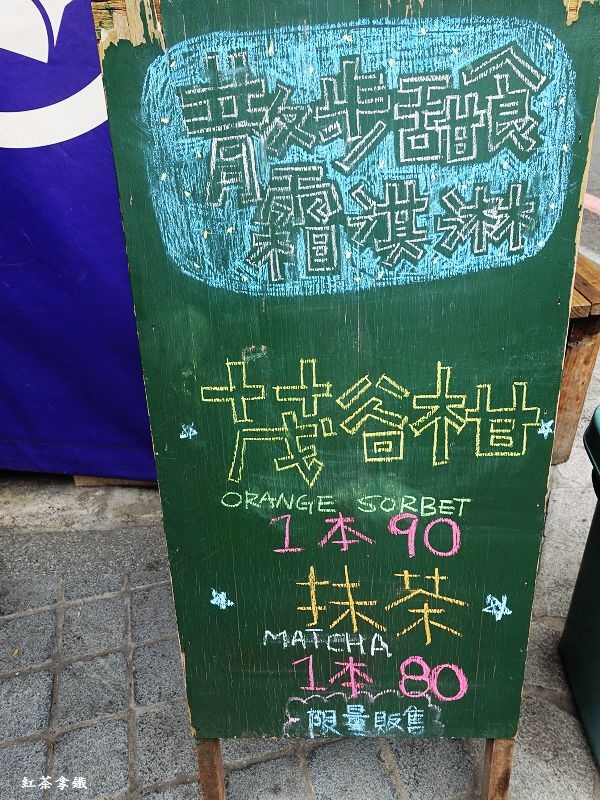 散步甜食
霜淇淋
茂谷柑
ORANGE SORBET
1本 90
抹茶
MATCHA
1本 80
限量販售
紅茶拿鐵